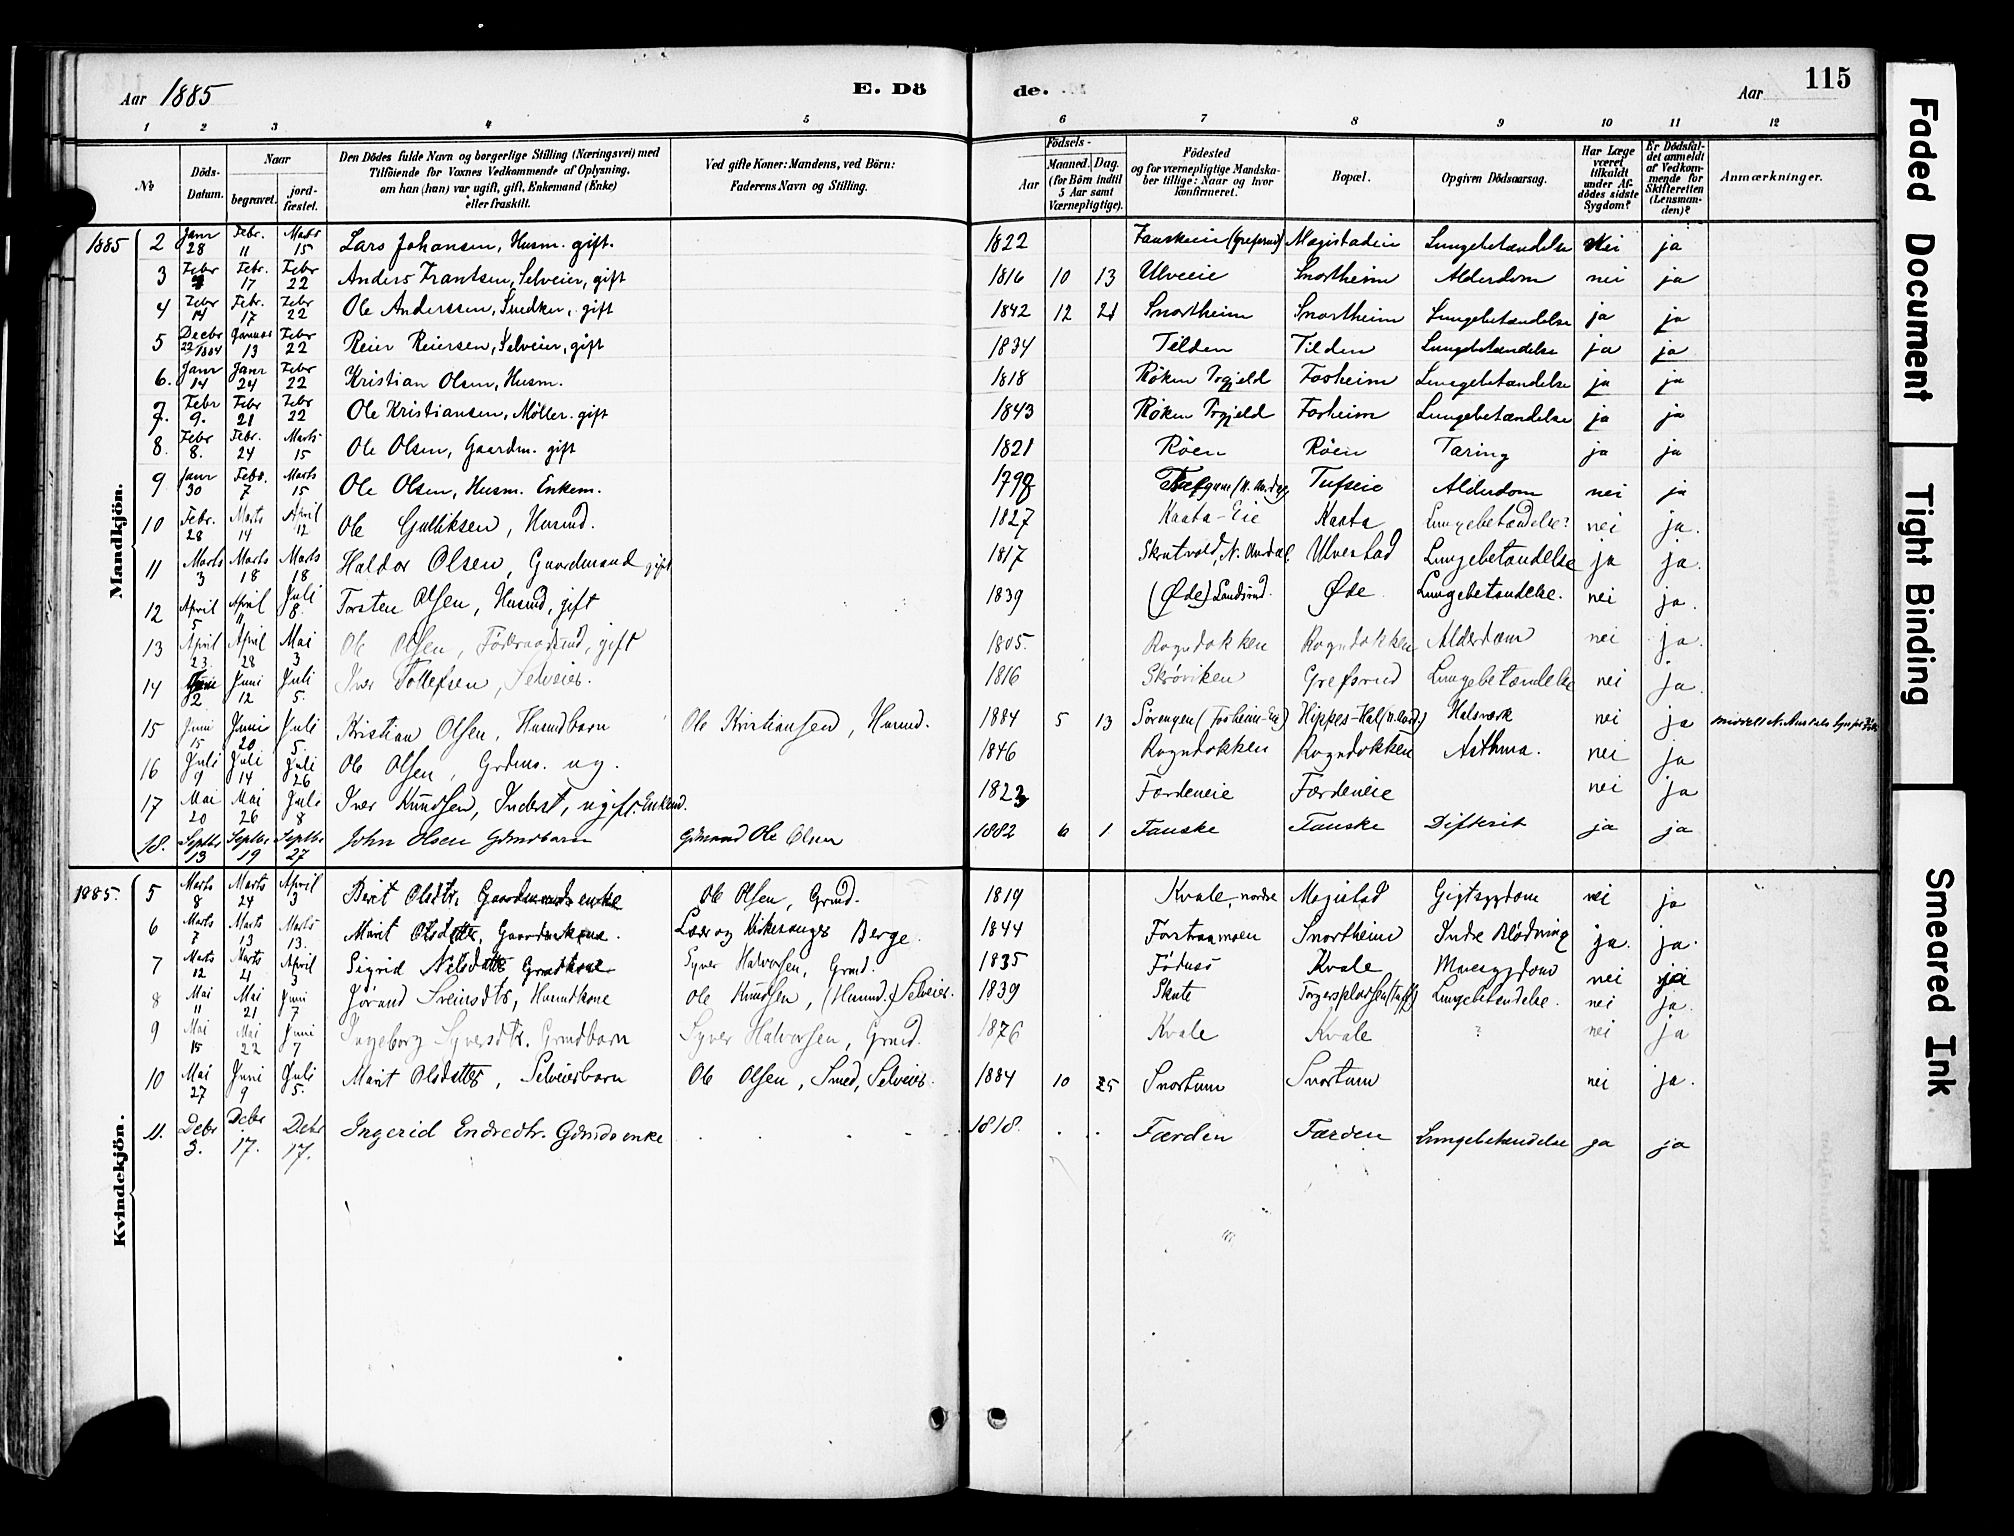 Aar 1885 E. Dö de. Aar 115
1 2 3 4 5 6 7 8 9 10 11 12
№ Döds-Datum. Naar begravet. jordfæstet. Den Dödes fulde Navn og borgerlige Stilling (Næringsvei) med Tilföiende for Voxnes Vedkommende af Oplysning, om han (hun) var ugift, gift, Enkemand (Enke) eller fraskilt. Ved gifte Koner: Mandens, ved Börn: Faderens Navn og Stilling. Födsels- Aar Maaned. Dag. (for Börn indtil 5 Aar samt Værnepligtige). Födested og for værnepligtige Mandskaber tillige: Naar og hvor konfirmeret. Bopæl. Opgiven Dödsaarsag. Har Læge været tilkaldt under Afdödes sidste Sygdom? Er Dödsfaldet anmeldt af Vedkommende for Skifteretten (Lensmanden)? Anmærkninger.
Mandkjön.
1885 2 Janr 28 Febr. 11 Marts 15 Lars Johansen, Husm. gift. 1822 Fauskeeie (Grefsrud) Magistadeie Lungebetændelse Nei ja
3 Febr Febr. 17 Febr 22 Anders Frantsen, Selveier, gift 1816 10 13 Ulveeie Snortheim Alderdom nei ja
4 Febr 14 Febr. 17 Febr 22 Ole Anderssen, Snedker, gift 1842 12 21 Snortheim Snortheim Lungebetændelse ja ja
5 Decbr 22/1884 Januar 13 Febr 22 Reier Reiersen, Selveier, gift 1834 Tilden Tilden Lungebetændelse ja ja
6. Janr 14 Janr 24 Febr 22 Kristian Olsen, Husm. 1818 Röken Prgjeld Fosheim Lungebetændelse ja ja
7. Febr 9. Febr 21 Febr 22 Ole Kristiansen, Möller. gift 1843 Röken Prgjeld Fosheim Lungebetændelse ja ja
8. Febr 8. Febr. 24 Marts 15 Ole Olsen, Gaardm. gift 1821 Röen Röen Tæring ja ja
9 Janr 30 Febr. 7 Marts 15 Ole Olsen, Husm. Enkem. 1798 Tufseie Alderdom nei ja
10 Febr. 28 Marts 14 April 12 Ole Gulliksen, Husmd. 1827 Kaata-Eie Kaata Lungebetændelse? nei ja.
11 Marts 3 Marts 18 Marts 18. Haldor Olsen, Gaardmand gift 1817 Skrutvold, N. Aurdal. Ulvestad Lungebetændelse ja ja.
12 April 5 April 11 Juli 8. Torsten Olsen, Husmd, gift 1839 (Øde) Sandsmd. Øde Lungebetændelse. nei ja.
13 April 23. April 28 Mai 3 Ole Olsen, Föderaadsmd, gift 1805. Rogndokken Rogndokken Alderdom nei ja.
14 Juni 2 Juni 12 Juli 5. Iver Tollefsen, Selveier. 1816 Skröviken Grefsrud Lungebetændelse nei ja.
15 Juni 15 Juni 20 Juli 5 Kristian Olsen, Husmdbarn Ole Kristiansen, Husmd. 1884 5 13 Sörengen (Fosheim-Eie) Hippes-Hal (N. Aurd.) Halsværk nei ja
16 Juli 9 Juli 14 Juli 26 Ole Olsen, Grdms. ug. 1846 Rogndokken Rogndokken Asthma. nei ja
17 Mai 20 Mai 26 Juli 8 Iver Knudsen, Inderst, ugift. Enkmd. 1823 Færdeneie Færdeneie nei ja
18. Septbr 13 Septbr 19 Septbr 27 John Olsen Gdmdbarn Gdmand Ole Olsen 1882 6 1 Fauske Fauske Difterit ja ja
Kvindekjön.
1885. 5 Marts 8 Marts 24 April 3 Berit Olsdtr. Gaardmands enke Ole Olsen, Grmd. 1819 Kvale, nordre Magistad Gigtsygdom nei ja
6 Marts 7 Marts 13 Marts 13. Marit Olsdatter, Gaardmkone. Lærer og Kirkesanger Berge. 1844 Forstrømoen Snortheim Indre Blödning ja. ja.
7 Marts 12 Marts 21 April 3 Sigrid Nilsdatter, Grmdkone Syver Halvorsen, Grmd. 1835 Födnes Kvale Mavesygdom nei ja
8 Mai 11 Mai 21 Juni 7 Jörand Sveinsdtr, Husmdkone Ole Knudsen, (Husmd.) Selveier. 1839 Skute Lungebetændelse. nei ja.
9 Mai 15 Mai 22 Juni 7 Ingeborg Syversdtr. Grmdbarn Syver Halvorsen, Grmd. 1876 Kvale Kvale ? nei ja
10 Mai 27 Juni 9 Juli 5. Marit Olsdatter, Selveierbarn Ole Olsen, Smed, Selveier. 1884 10 25 Snortum Snortum nei ja.
11. Debr 3. Debr 17. Debr 17. Ingerid Endredtr. Gdmds enke 1818. Færden Færden Lungebetændelse ja ja
Faded Document
Tight Binding
Smeared Ink